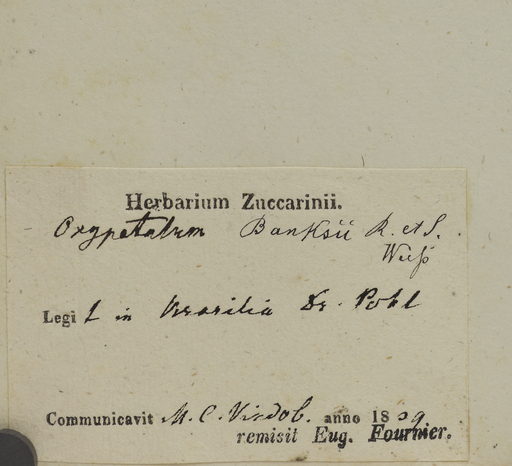 Herbarium Zuccarinii.
Oxypetalum Banksii R. et S.
Legit in Brasilia Dr. Pohl
Communicavit M. C. Vindob. anno 1839
remisit Eug. Fournier.